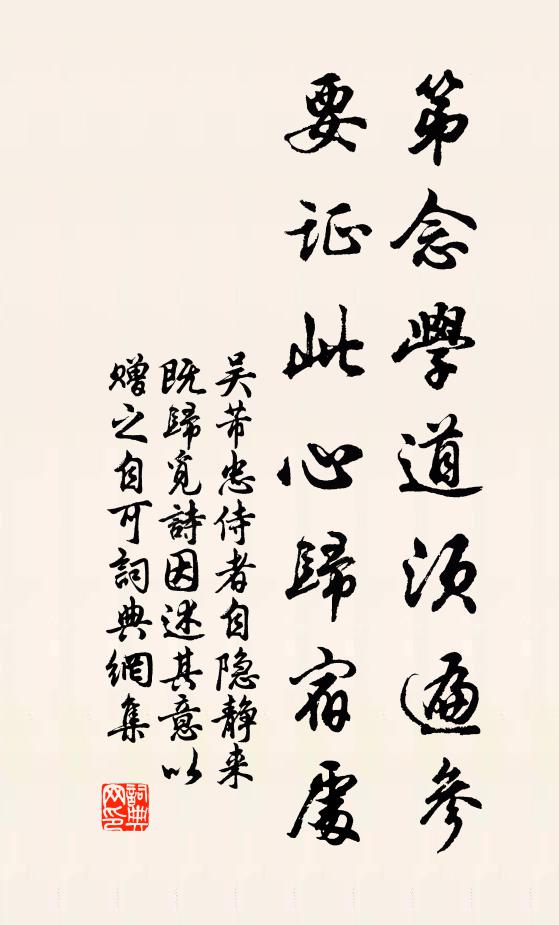 第念學道須遍參
要证此心歸宿處
吴芾忠侍者自隐静来
既歸覓詩因述其意以
赠之自可詞典網集
詞典网印